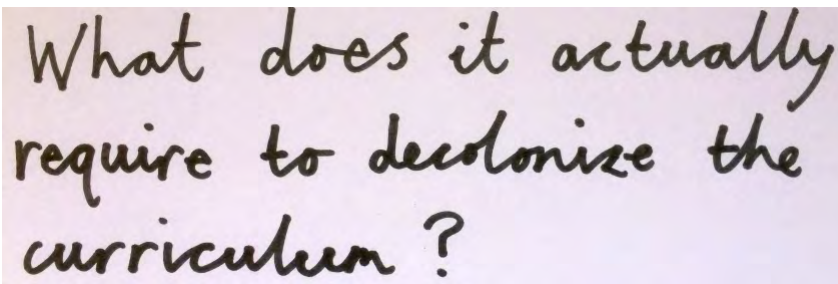 What does it actually
require to decolonize the
curriculum?